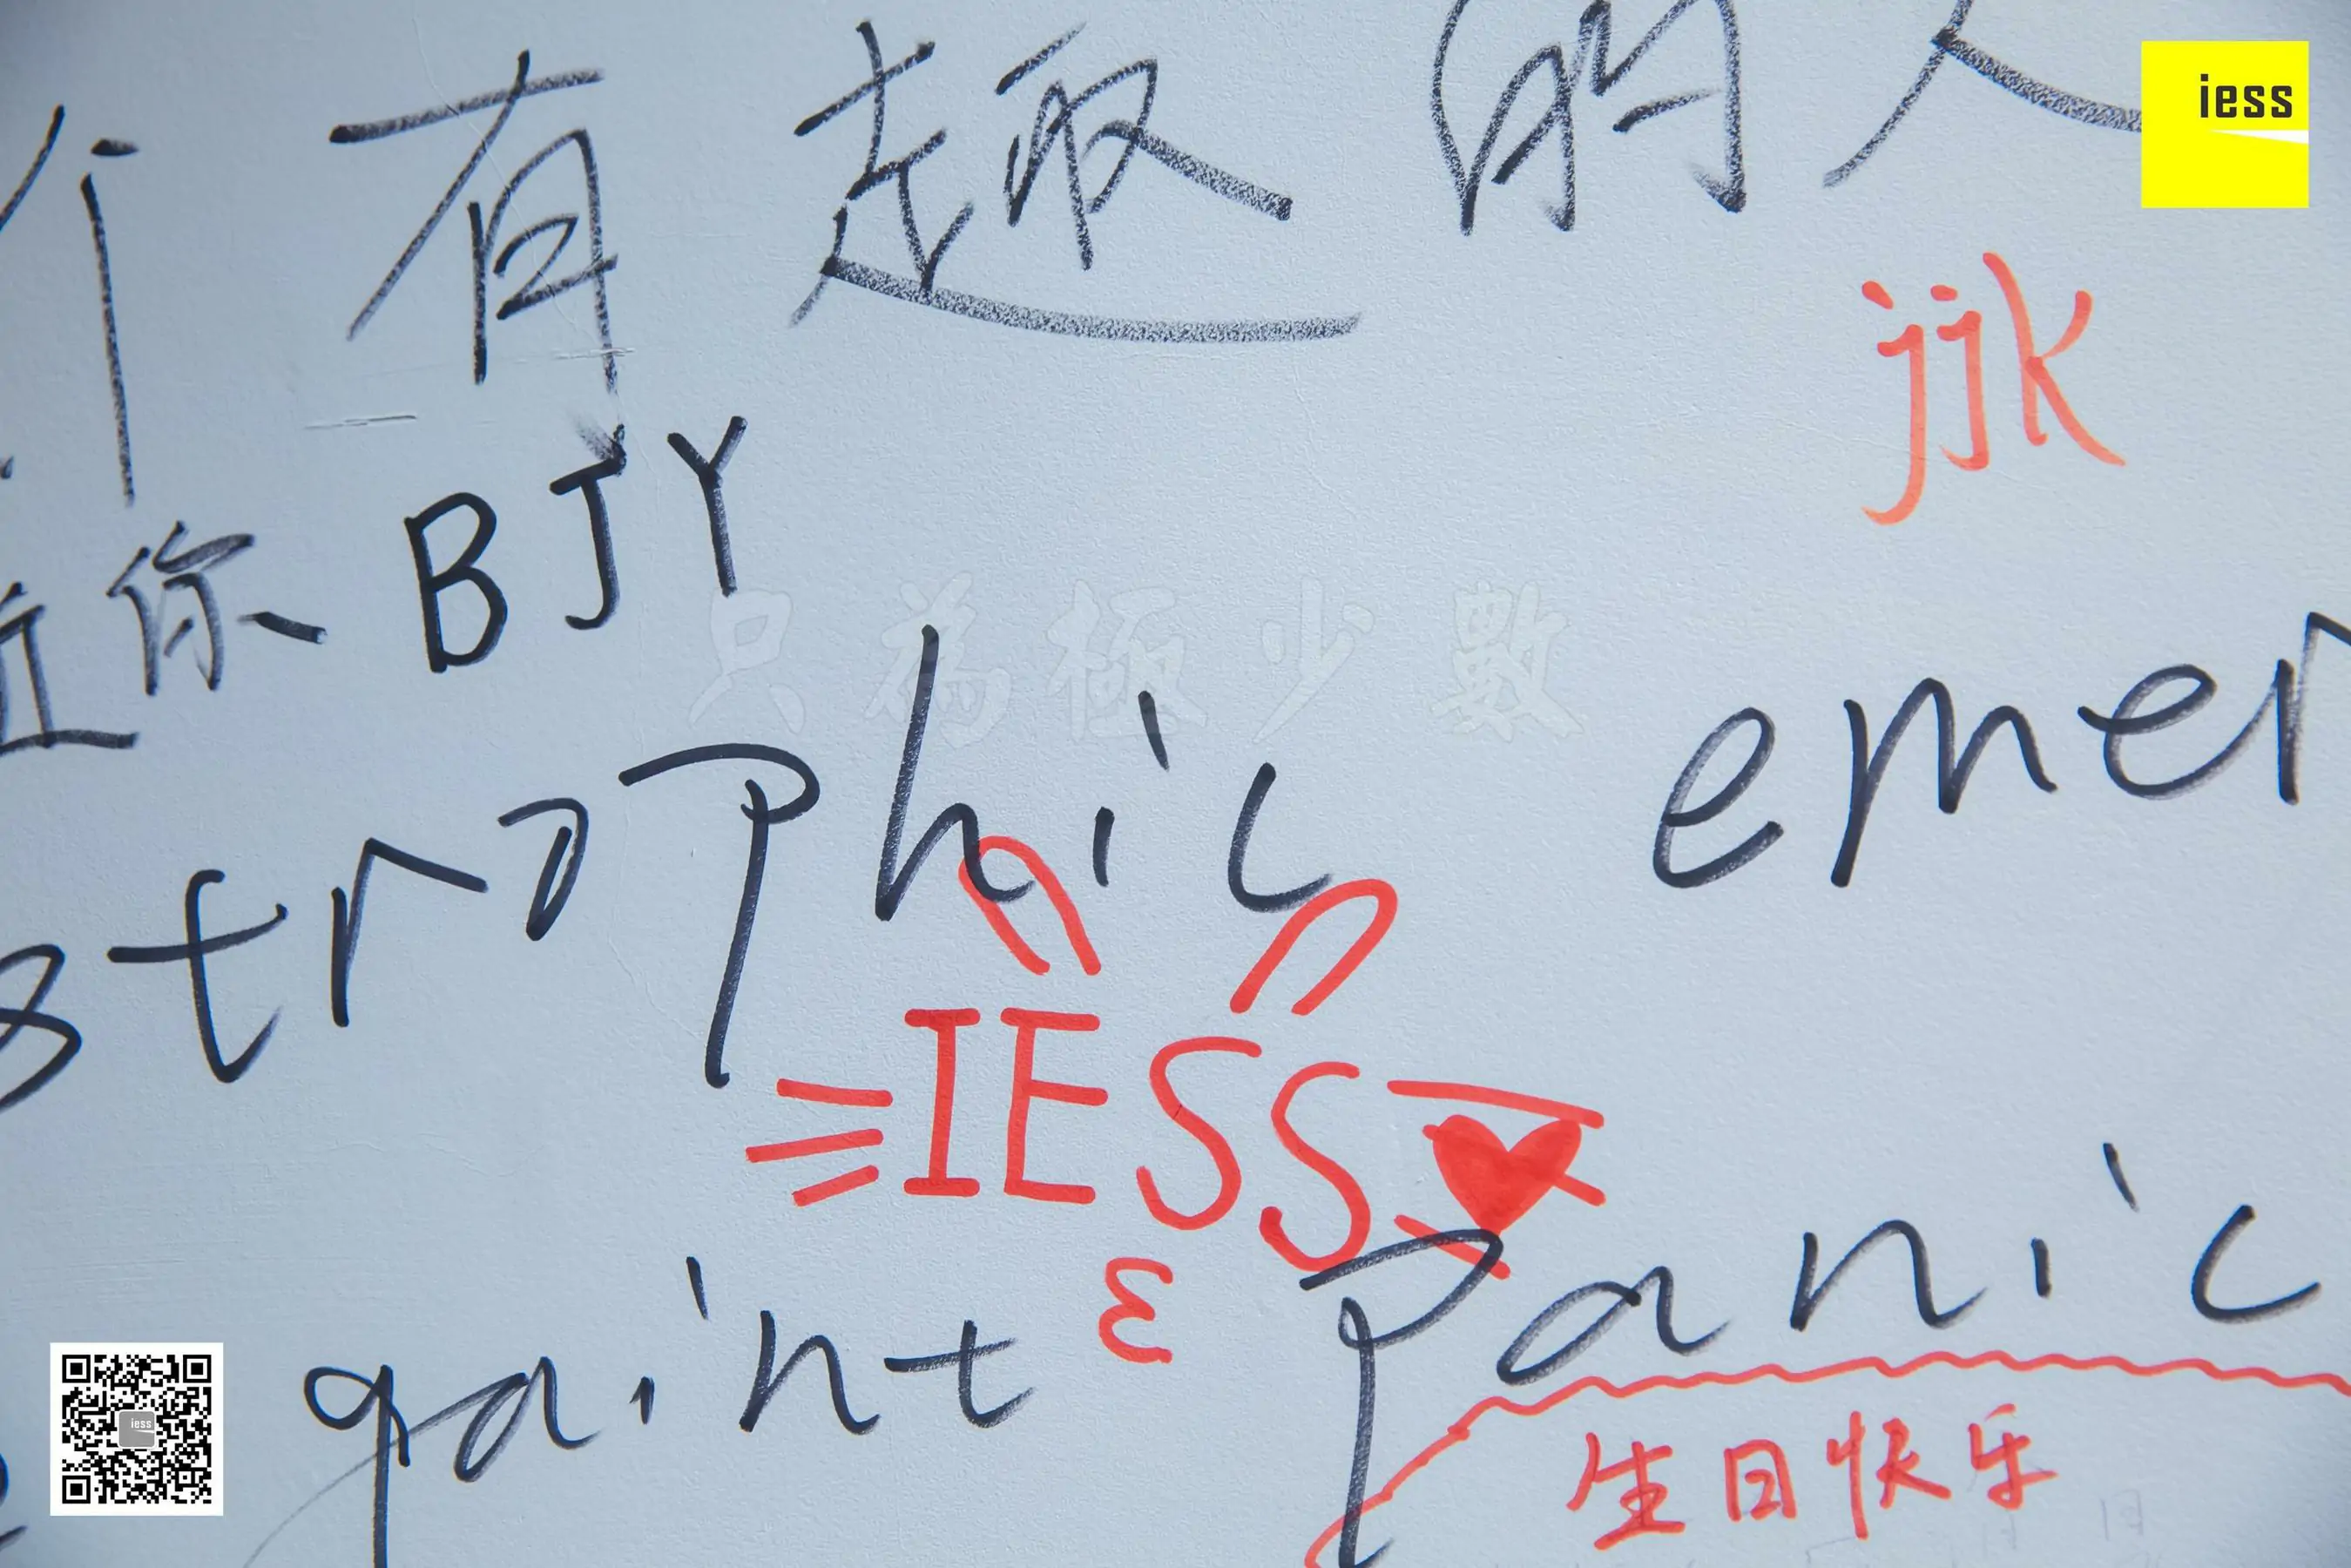 个有趣的人
iess
jjk
近你、BJY
只為極少數
strophic emer
IESS
ε
paint Panic
生日快乐
iess